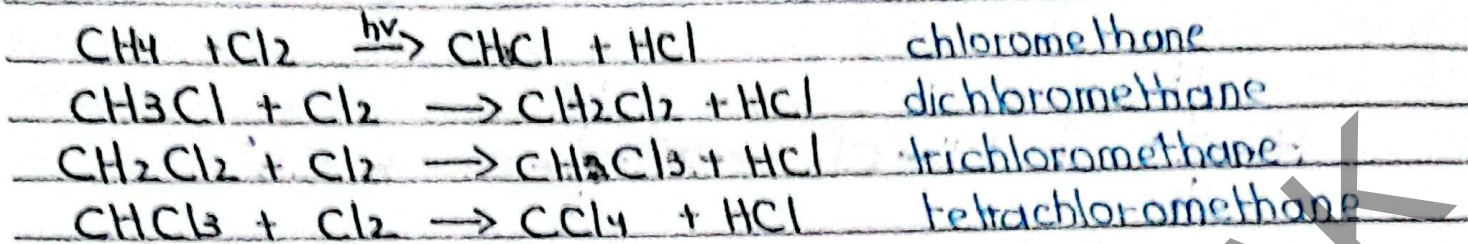 CH4 + Cl2 hv→ CHCl + HCl chloromethane
CH3Cl + Cl2 → CH2Cl2 + HCl dichloromethane
CH2Cl2 + Cl2 → CHCl3 + HCl trichloromethane
CHCl3 + Cl2 → CCl4 + HCl tetrachloromethane